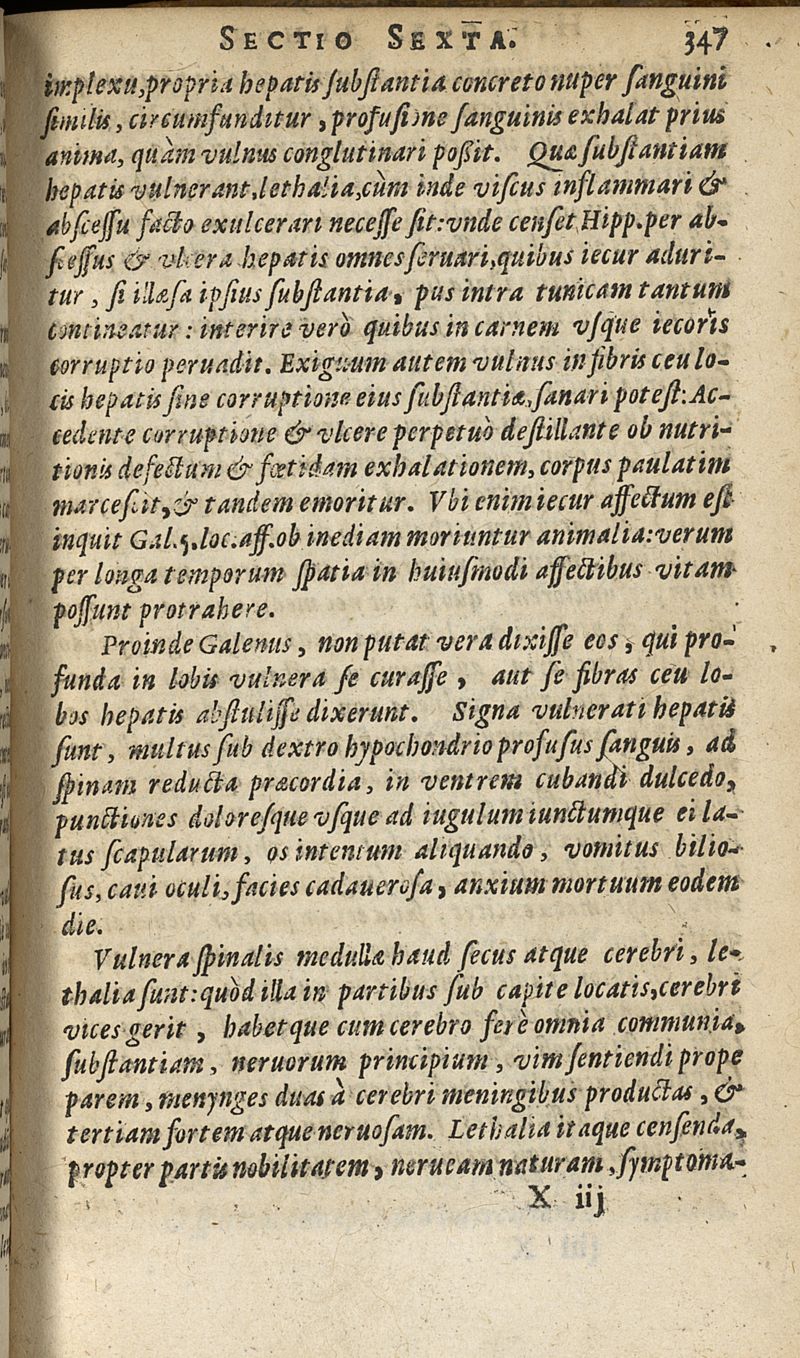 SECTIO SEXTA. 347
implexu, propria hepatis substantia concreto nuper sanguini
similis, circumfunditur, profusione sanguinis exhalat prius
anima, quàm vulnus conglutinari poßit. Quæ substantiam
hepatis vulnerant, lethalia, cùm inde viscus inflammari &
abscessu facto exulcerari necesse sit: vnde censet Hipp. per ab-
scessus & vlcera hepatis omnes seruari, quibus iecur aduri-
tur, si illæsa ipsius substantia, pus intra tunicam tantum
contineatur: interire verò quibus in carnem vsque iecoris
corruptio peruadit. Exiguum autem vulnus in fibris ceu lo-
cis hepatis sine corruptione eius substantiæ, sanari potest: Ac-
cedente corruptione & vlcere perpetuò destillante ob nutri-
tionis defectum & fœtidam exhalationem, corpus paulatim
marcescit, & tandem emoritur. Vbi enim iecur affectum est
inquit Gal. 5. loc. aff. ob inediam moriuntur animalia: verum
per longa temporum spatia in huiusmodi affectibus vitam
possunt protrahere.
Proinde Galenus, non putat vera dixisse eos, qui pro-
funda in lobis vulnera se curasse, aut se fibras ceu lo-
bos hepatis abstulisse dixerunt. Signa vulnerati hepatis
sunt, multus sub dextro hypochondrio profusus sanguis, ad
spinam reducta præcordia, in ventrem cubandi dulcedo,
punctiones doloresque vsque ad iugulum iunctumque ei la-
tus scapularum, os intentum aliquando, vomitus bilio-
sus, caui oculi, facies cadauerosa, anxium mortuum eodem
die.
Vulnera spinalis medullæ haud secus atque cerebri, le-
thalia sunt: quòd illa in partibus sub capite locatis, cerebri
vices gerit, habetque cum cerebro ferè omnia communia,
substantiam, neruorum principium, vim sentiendi prope
parem, menynges duas à cerebri meningibus productas, &
tertiam fortem atque neruosam. Lethalia itaque censenda,
propter partis nobilitatem, nerueam naturam, symptoma-
X iij